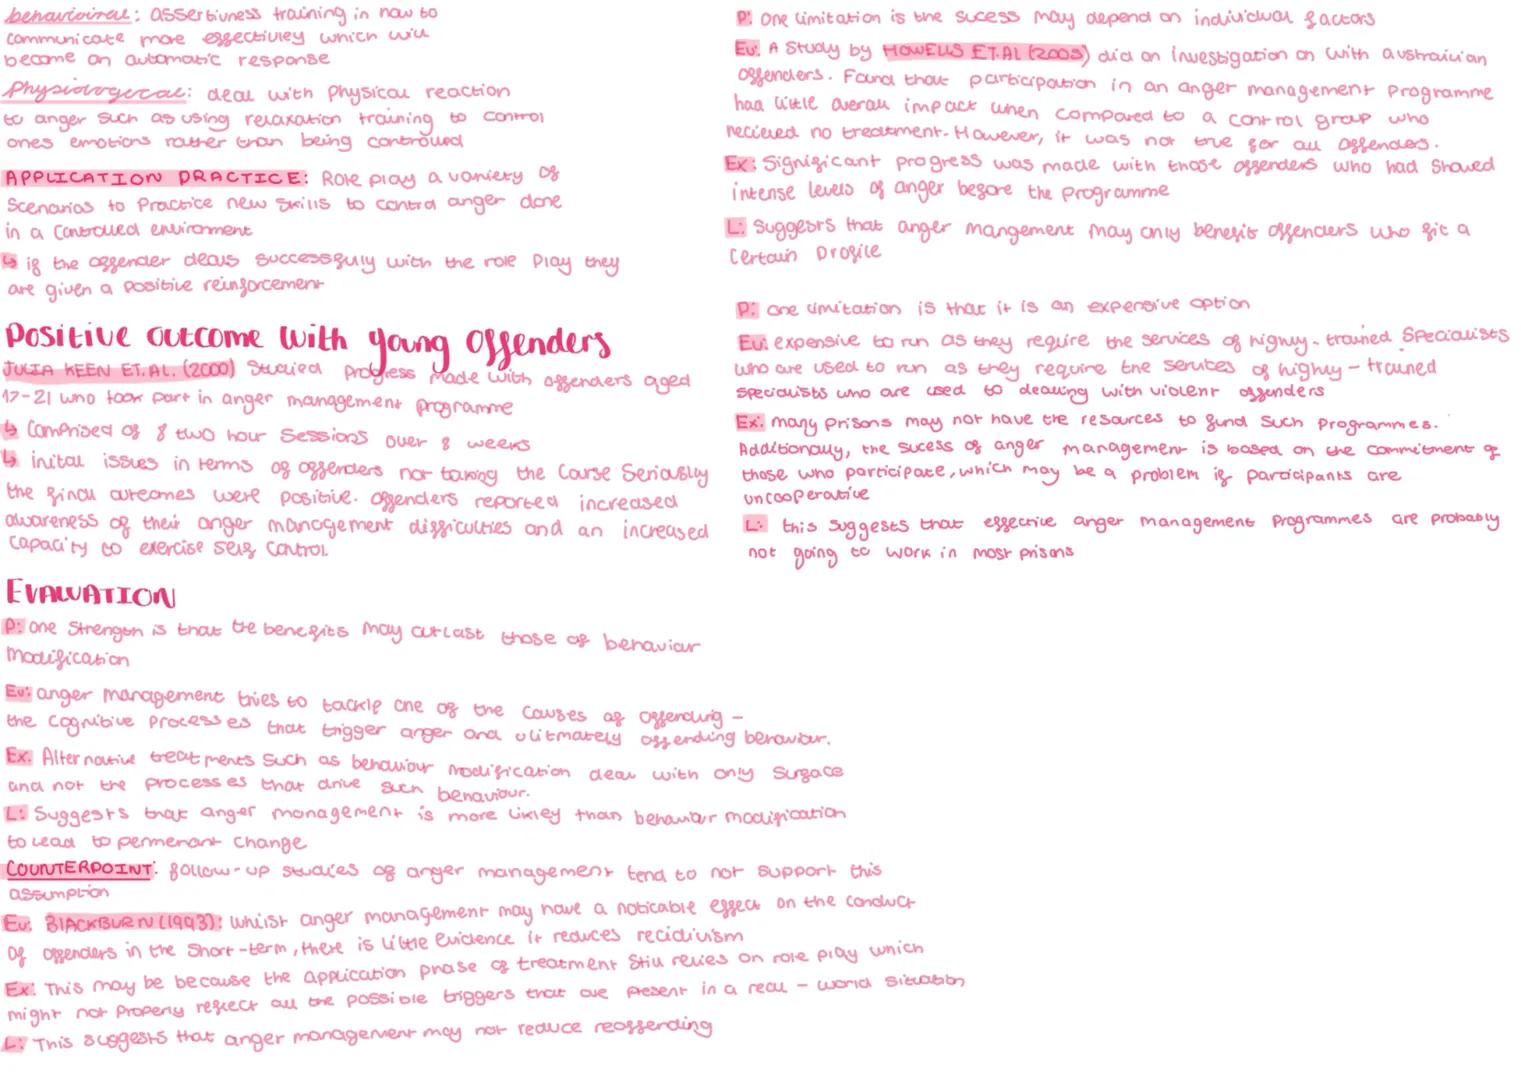 behavioural: assertivness training in how to
communicate more effectivley which will
become an automatic response
Physiological: deal with Physical reaction
to anger such as using relaxation training to control
ones emotions rather than being controlled
APPLICATION PRACTICE: Role play a variety of
Scenarios to Practice new skills to control anger done
in a Controlled environment
↳ if the offender deals successfully with the role Play they
are given a positive reinforcement
Positive outcome with young offenders
JULIA KEEN ET.AL. (2000) Studied Progress made with offenders aged
17-21 who took part in anger management programme
↳ Comprised of 8 two hour Sessions over 8 weeks
↳ inital issues in terms of offenders not taking the Course Seriously
the final outcomes were positive. Offenders reported increased
awareness of their anger management difficulties and an increased
capacity to exercise self control.
EVALUATION
P: One Strength is that the benefits May outlast those of behaviour
Modification
Ev: anger management tries to tackle one of the causes of offending -
the Cognitive Processes that trigger anger and ulitmately offending behaviour.
Ex: Alternative treatments Such as behaviour modification deal with only Surface
and not the processes that drive such behaviour.
L: Suggests that anger management is more likley than behaviour modification
to lead to permenant change
COUNTERPOINT: follow-up studies of anger management tend to not support this
assumption
Ev: BlACKBURN (1993): Whilst anger management may have a noticable effect on the conduct
of offenders in the Short-term, there is little evidence it reduces recidivism
Ex: This may be because the application phase of treatment Still relies on role play which
might not properly reflect all the possible triggers that are present in a real - world situation
L: This suggests that anger management may not reduce reoffending
P: One limitation is the sucess may depend on individual factors
Ev: A Study by HOWELLS ET.AL (2005) did an investigation on with australian
offenders. Found that participation in an anger management Programme
had little overall impact when compared to a control group who
recieved no treatment. However, it was not true for all offenders.
Ex: Significant progress was made with those offenders who had Showed
intense levels of anger before the programme
L: Suggests that anger mangement may only benefit offenders who fit a
Certain Profile
P: one limitation is that it is an expensive option
Ev: expensive to run as they require the services of highly - trained Specialists
who are used to run as they require the services of highly - trained
specialists who are used to dealing with violent offenders
Ex: many prisons may not have the resources to fund such programmes.
Additionally, the sucess of anger management is based on the commitment of
those who participate, which may be a problem if participants are
uncooperative
L: this suggests that effective anger management Programmes are probably
not going to work in most prisons